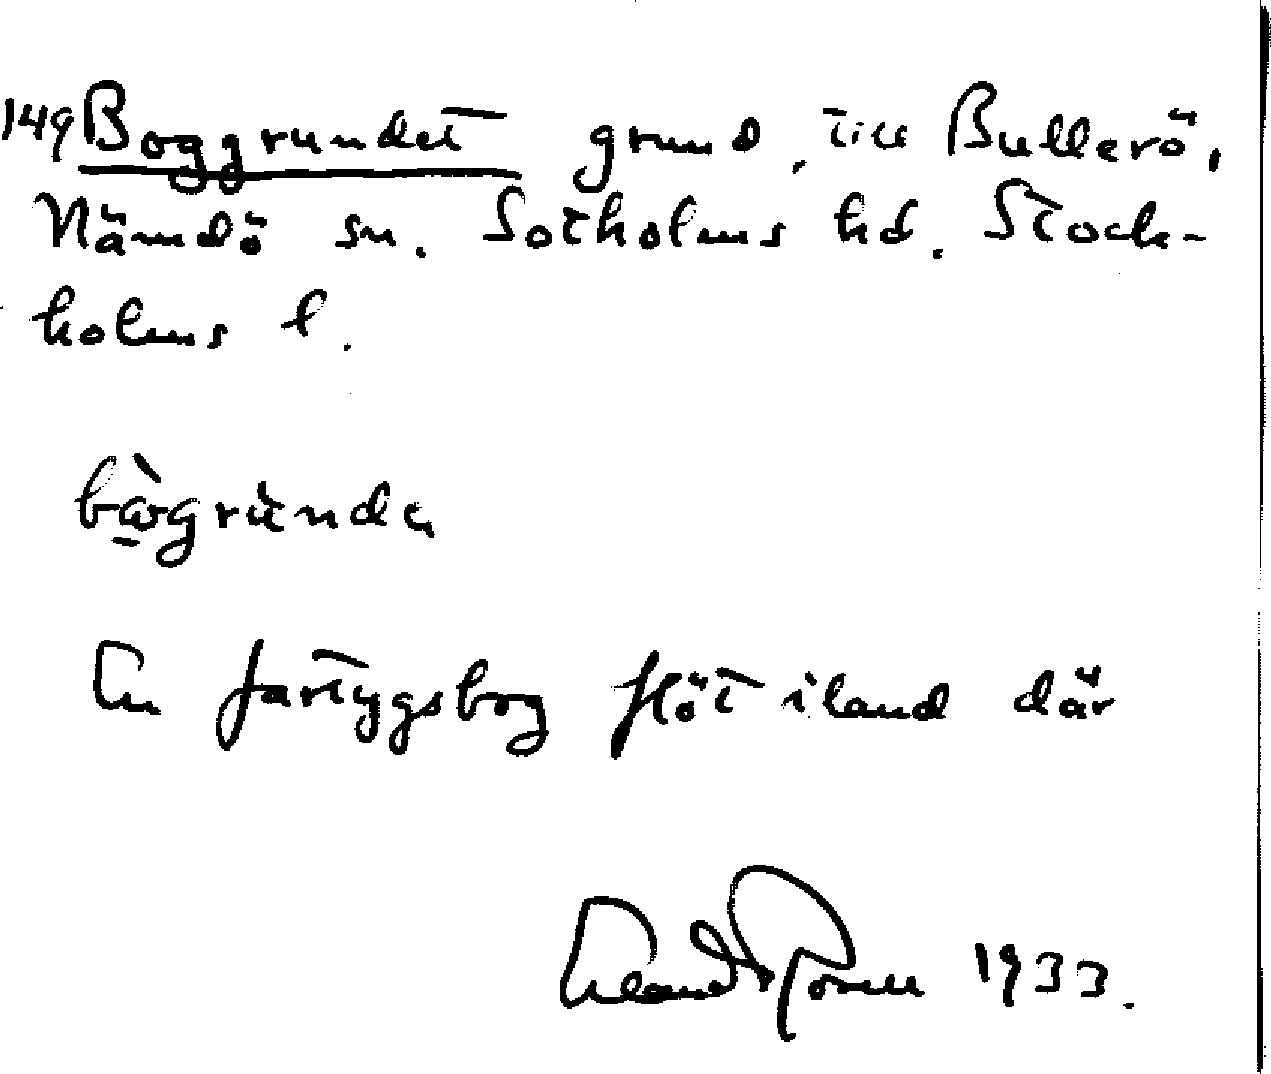 149 Boggrundet grund, till Bullerö,
Nämdö sn. Sotholms hd. Stock-
holms l.
En fartygsbog flöt iland där
Erland Rosell 1933.